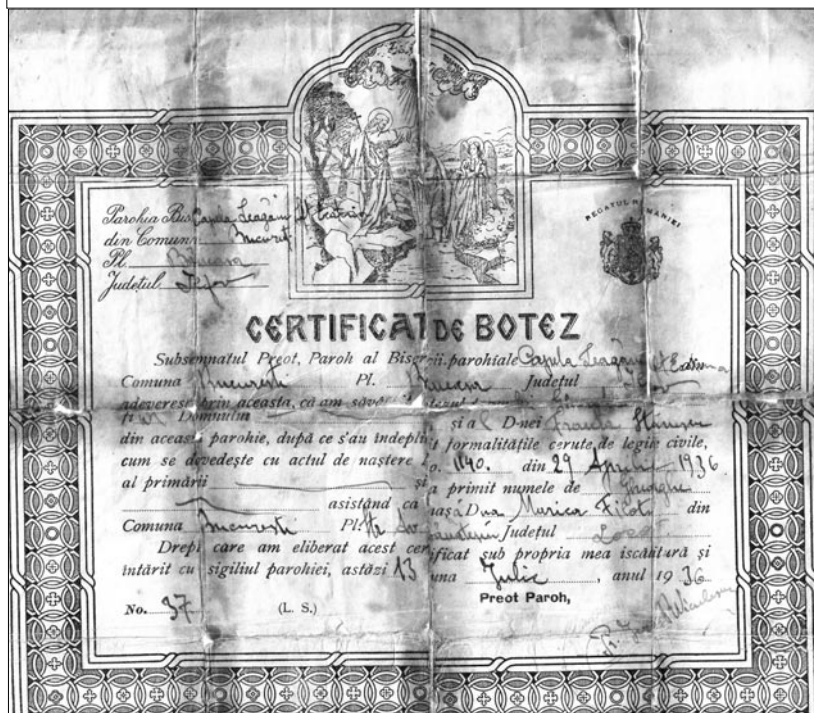 Parohia Bis. Capela Leagăn Sf. Ecaterina
din Comuna Bucureşti
Pl. Băneasa
Judeţul Ilfov
REGATUL ROMÂNIEI
CERTIFICAT DE BOTEZ
Subsemnatul Preot, Paroh al Bisericii parohiale Capela Leagăn Sf Ecaterina
Comuna Bucureşti Pl. Băneasa Judeţul Ilfov
adeveresc prin aceasta, că am săvâ
Domnului şi al D-nei Stănescu
din această parohie, după ce s'au îndeplinit formalităţile cerute de legile civile,
cum se dovedeşte cu actul de naştere No. 1140. din 29 Aprilie 1936
al primării şi a primit numele de Gheorghe
asistând ca naşă D-na Marica Filoti din
Comuna Bucureşti Pl. Judeţul
Drept care am eliberat acest certificat sub propria mea iscălitură şi
întărit cu sigiliul parohiei, astăzi 13 luna Iulie, anul 1936
No. 37 (L. S.) Preot Paroh,
Pr.